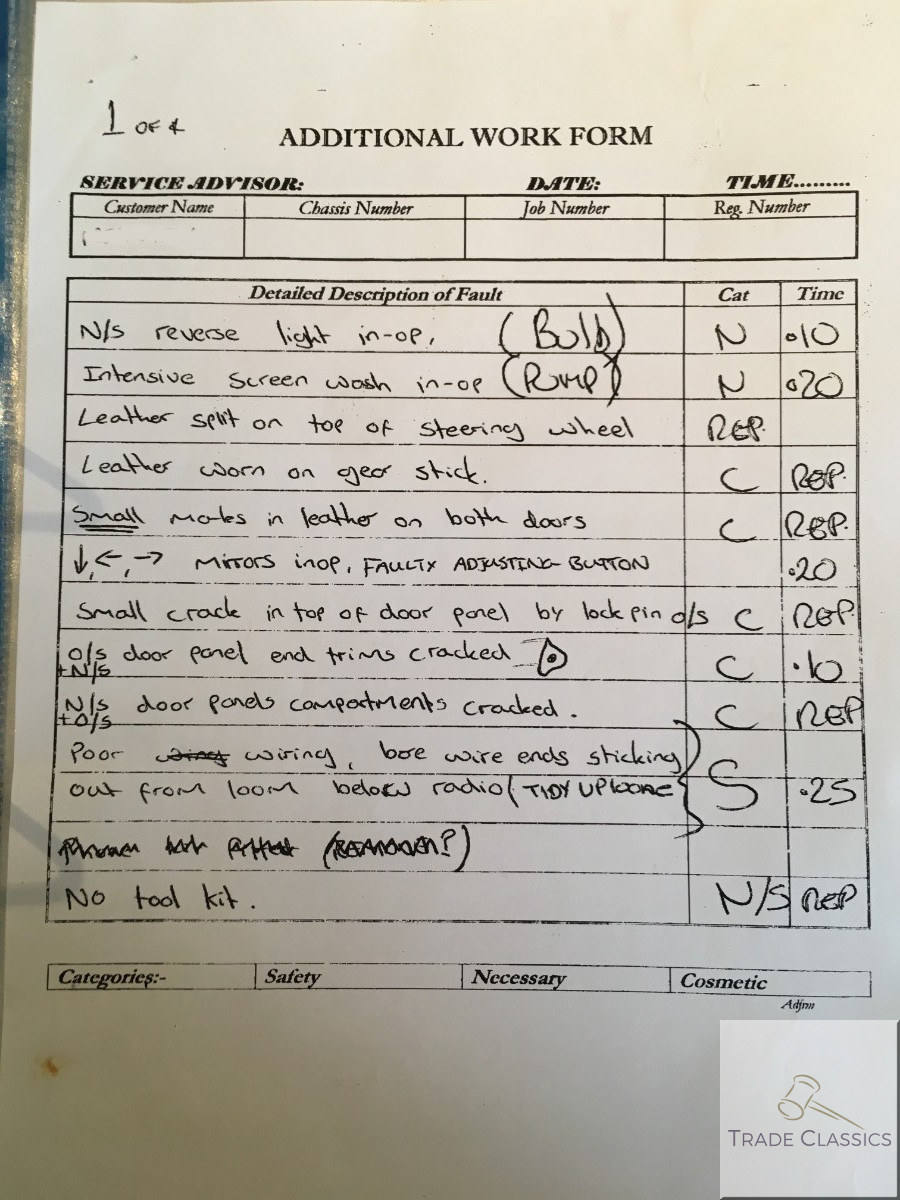 1 OF 4
ADDITIONAL WORK FORM
SERVICE ADVISOR: DATE: TIME.........
Customer Name Chassis Number Job Number Reg. Number
Detailed Description of Fault Cat Time
N/S reverse light in-op, (Bulb) N .10
Intensive Screen wash in-op (PUMP) N .20
Leather split on top of steering wheel REP.
Leather worn on gear stick. C REP.
Small marks in leather on both doors C REP.
↓,←,→ MIRRORS INOP, FAULTY ADJUSTING BUTTON .20
Small crack in top of door panel by lock pin o/s C REP.
O/S door panel end trims cracked C .10
+N/S
N/S door panels compartments cracked. C REP
+O/S
Poor wiring, bare wire ends sticking
out from loom below radio (TIDY UP S .25
No tool kit. N/S REP
Categories:- Safety Necessary Cosmetic
Adfrm
TRADE CLASSICS